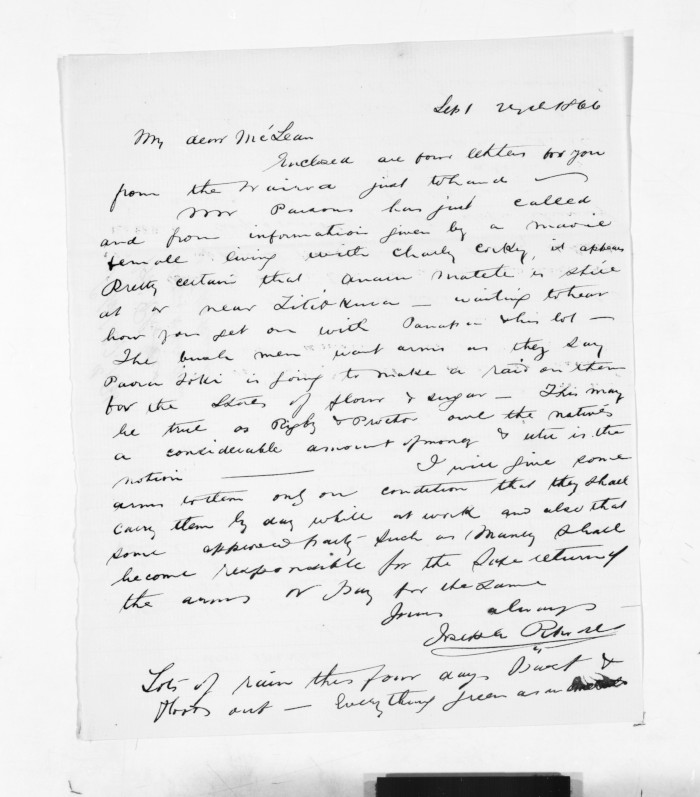 Sept 1866
My dear McLean
Enclosed are four letters for you
from the Wairoa just to hand
Mr Parsons has just called
and from information given by a maorie
female living with Charly it appears
Pretty certain that matete is still
at or near — waiting to hear
how you get on with Panapa & his lot —
The bush men want arms as they say
Paora Toki is going to make a raid on them
for the Stores of flour & sugar — This may
be true as Rigby & Proctor owe the natives
a considerable amount of money & utu is the
notion — I will give some
arms to them only on condition that they shall
carry them by day while at work and also that
some approved party such as Manly shall
become responsible for the safe return of
the arms or Pay for the same
Yours always

Lots of rain this four days &
floods out — Everything green as